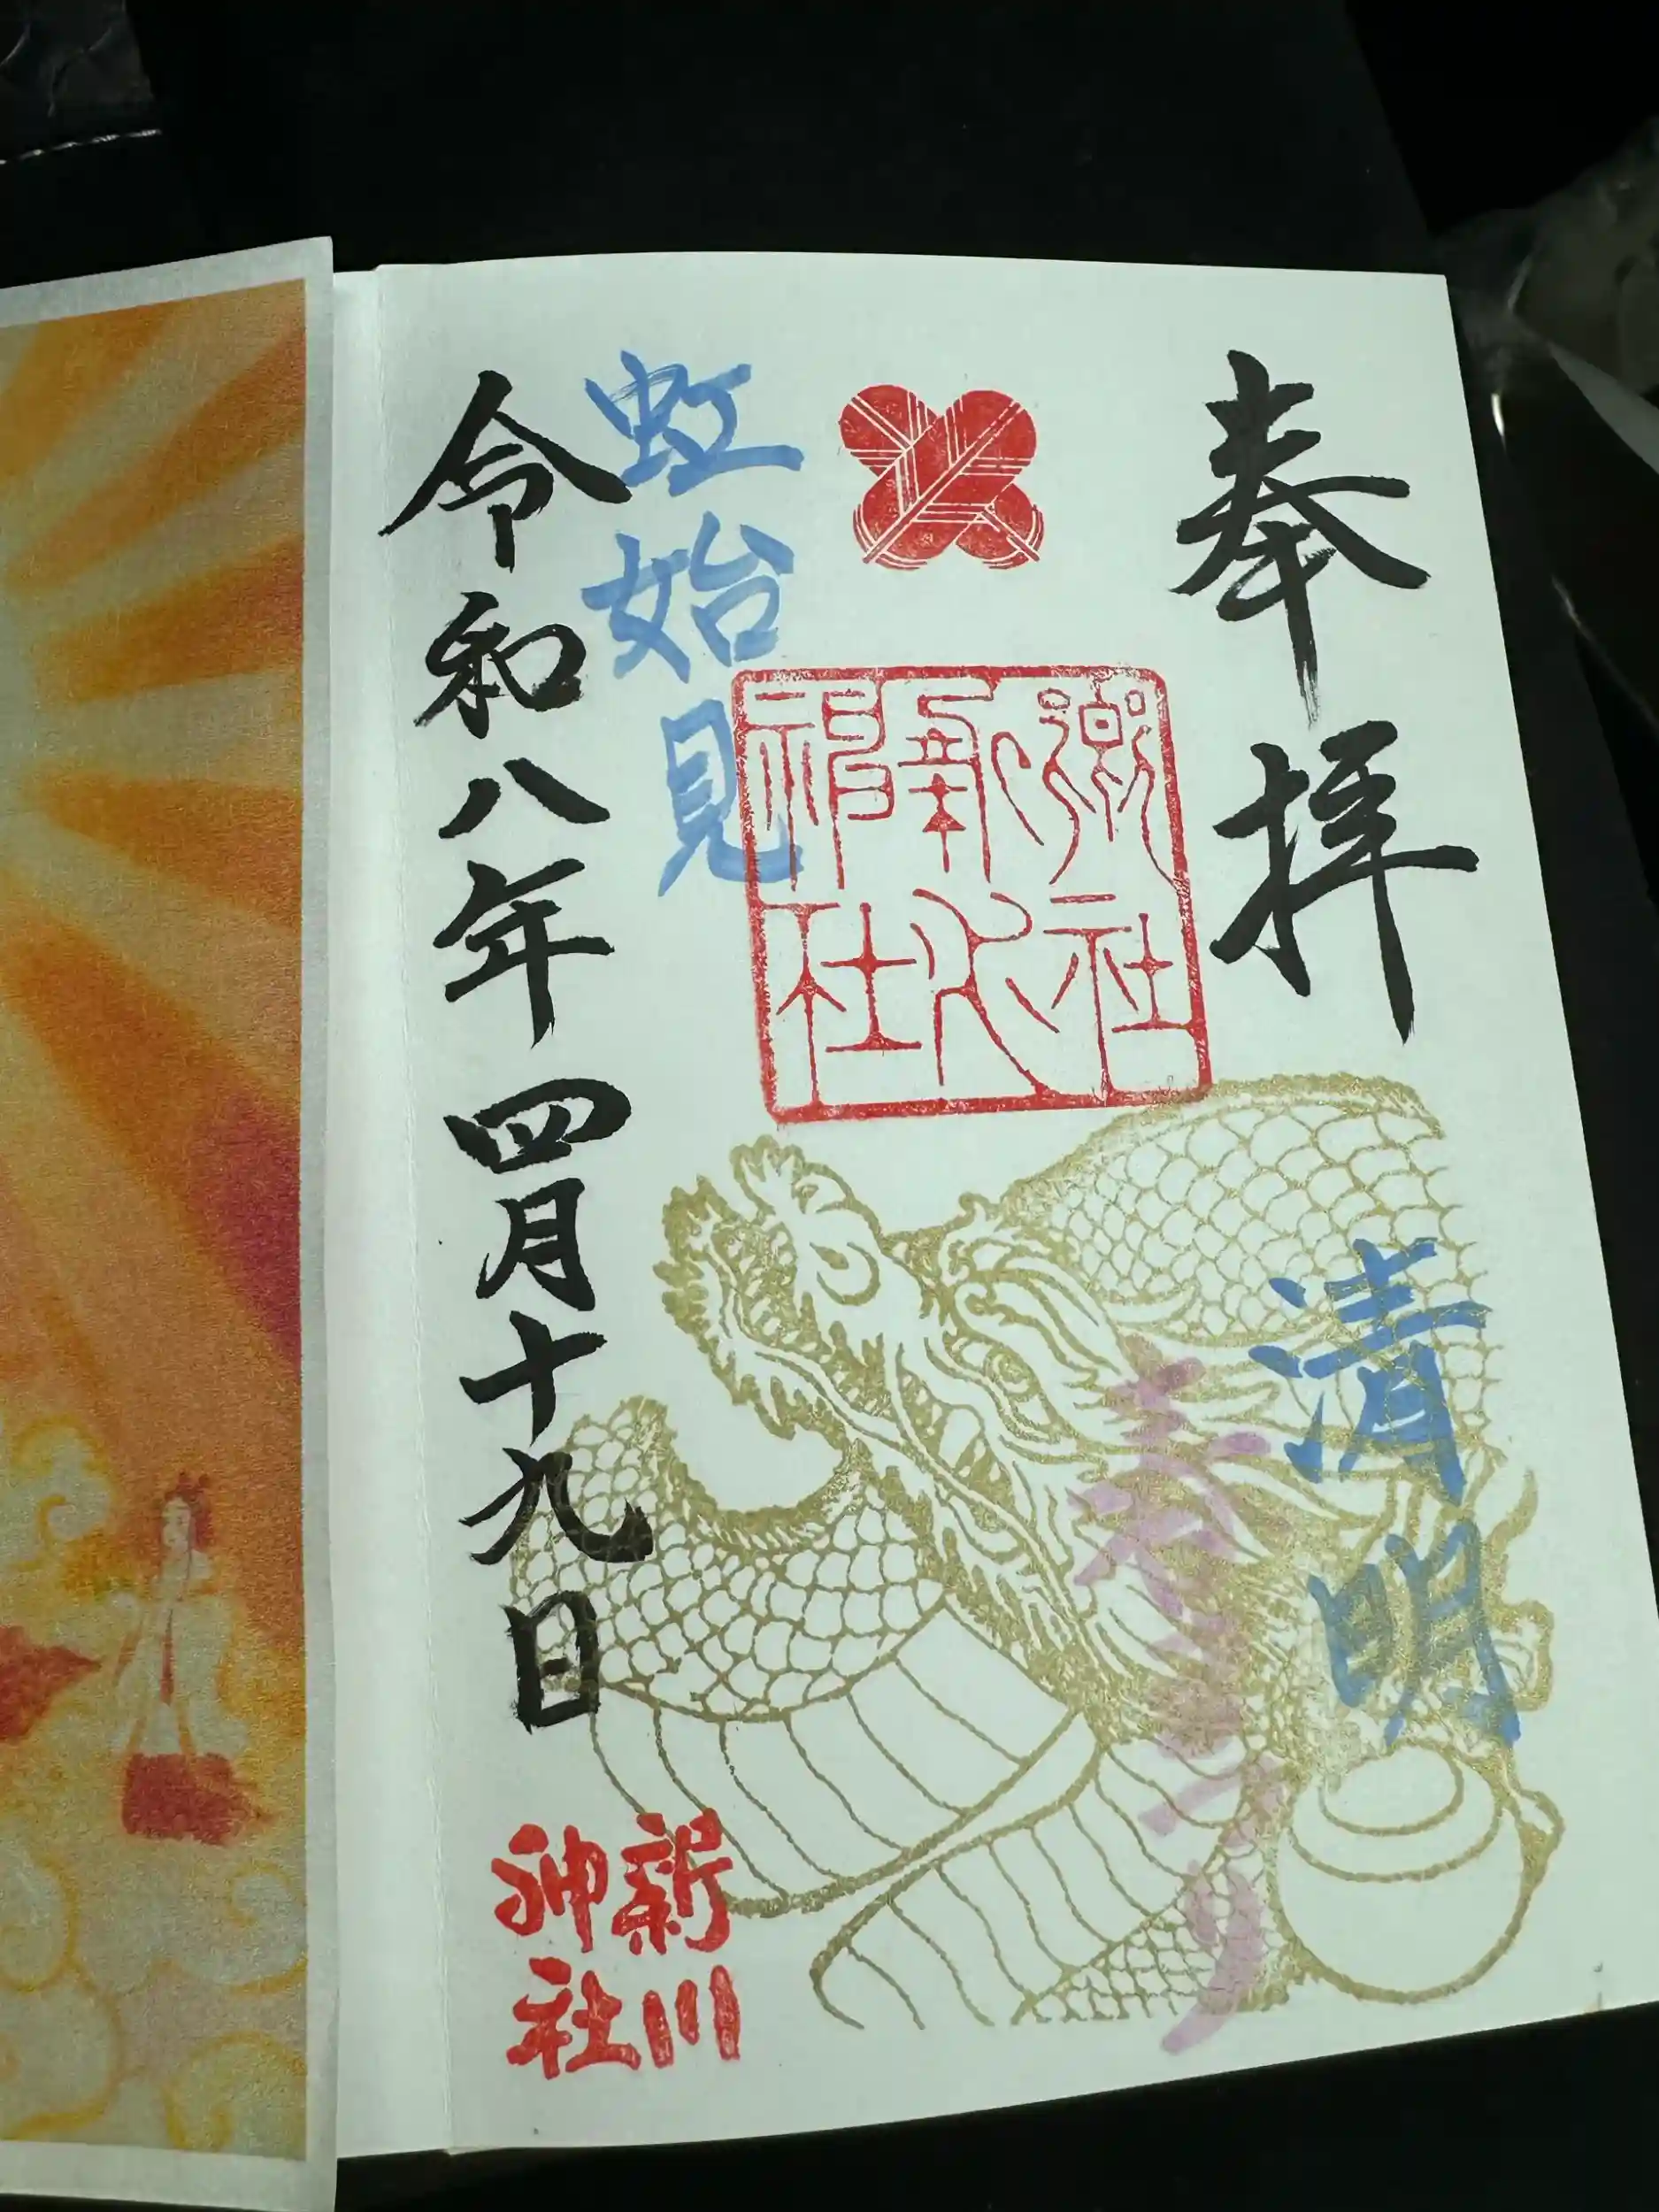 奉拝
清明
春まつり
虹始見
令和八年四月十九日
新川
神社